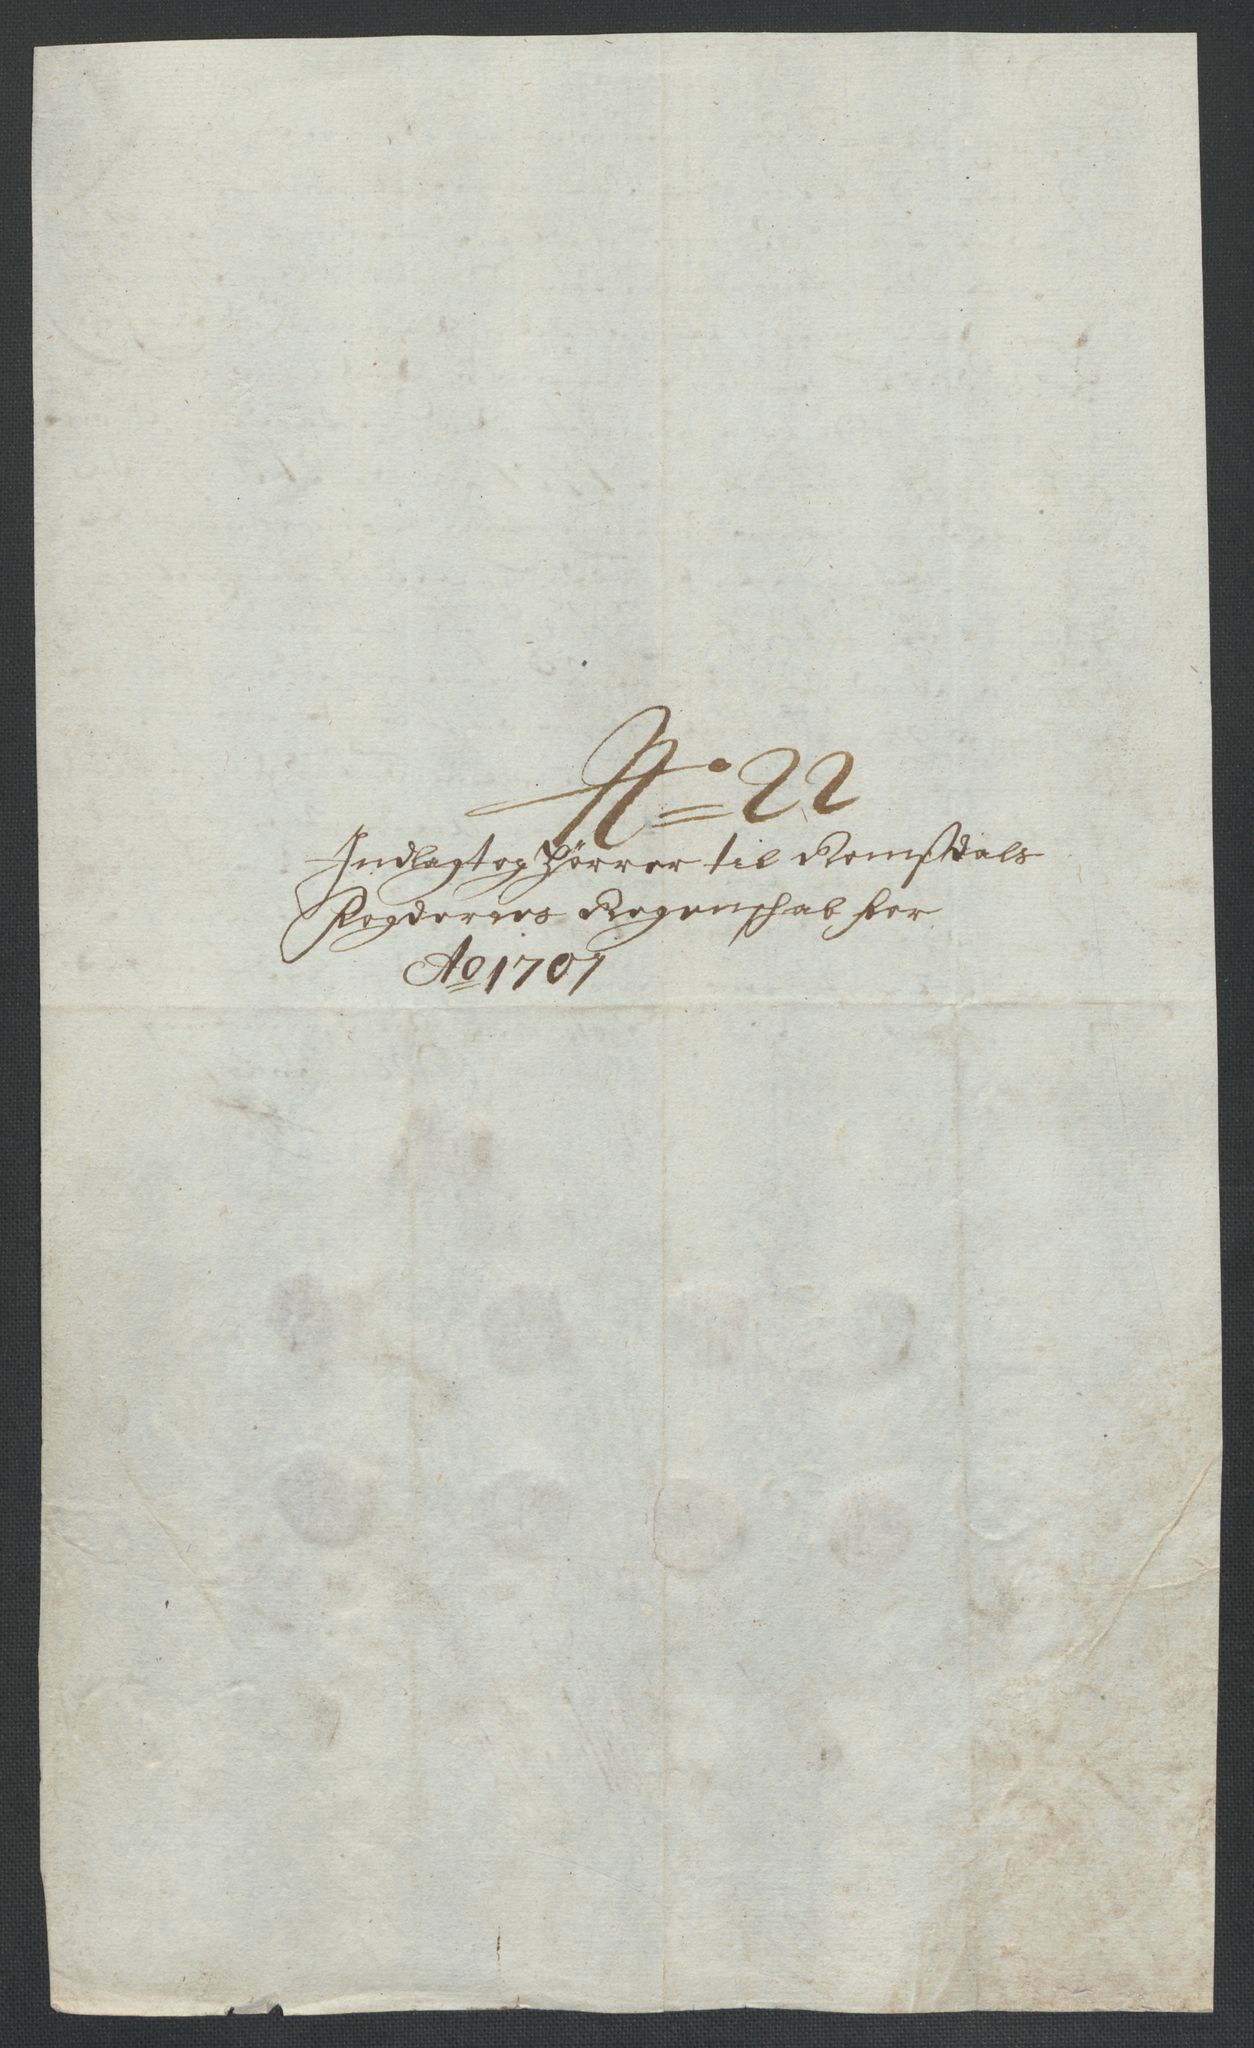 No: 22
Indlagt og hörrer til Romsdals
Fogderies Regenschab for
Ao 1707